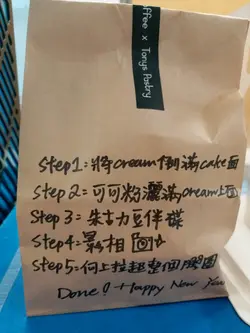 ffee x Tonys Pastry
Step1:將cream倒滿cake面
Step 2:可可粉灑滿cream上面
Step 3:朱古力豆伴碟
Step4:影相
Step5:向上拉起整個膠圈
Done! Happy New Yea